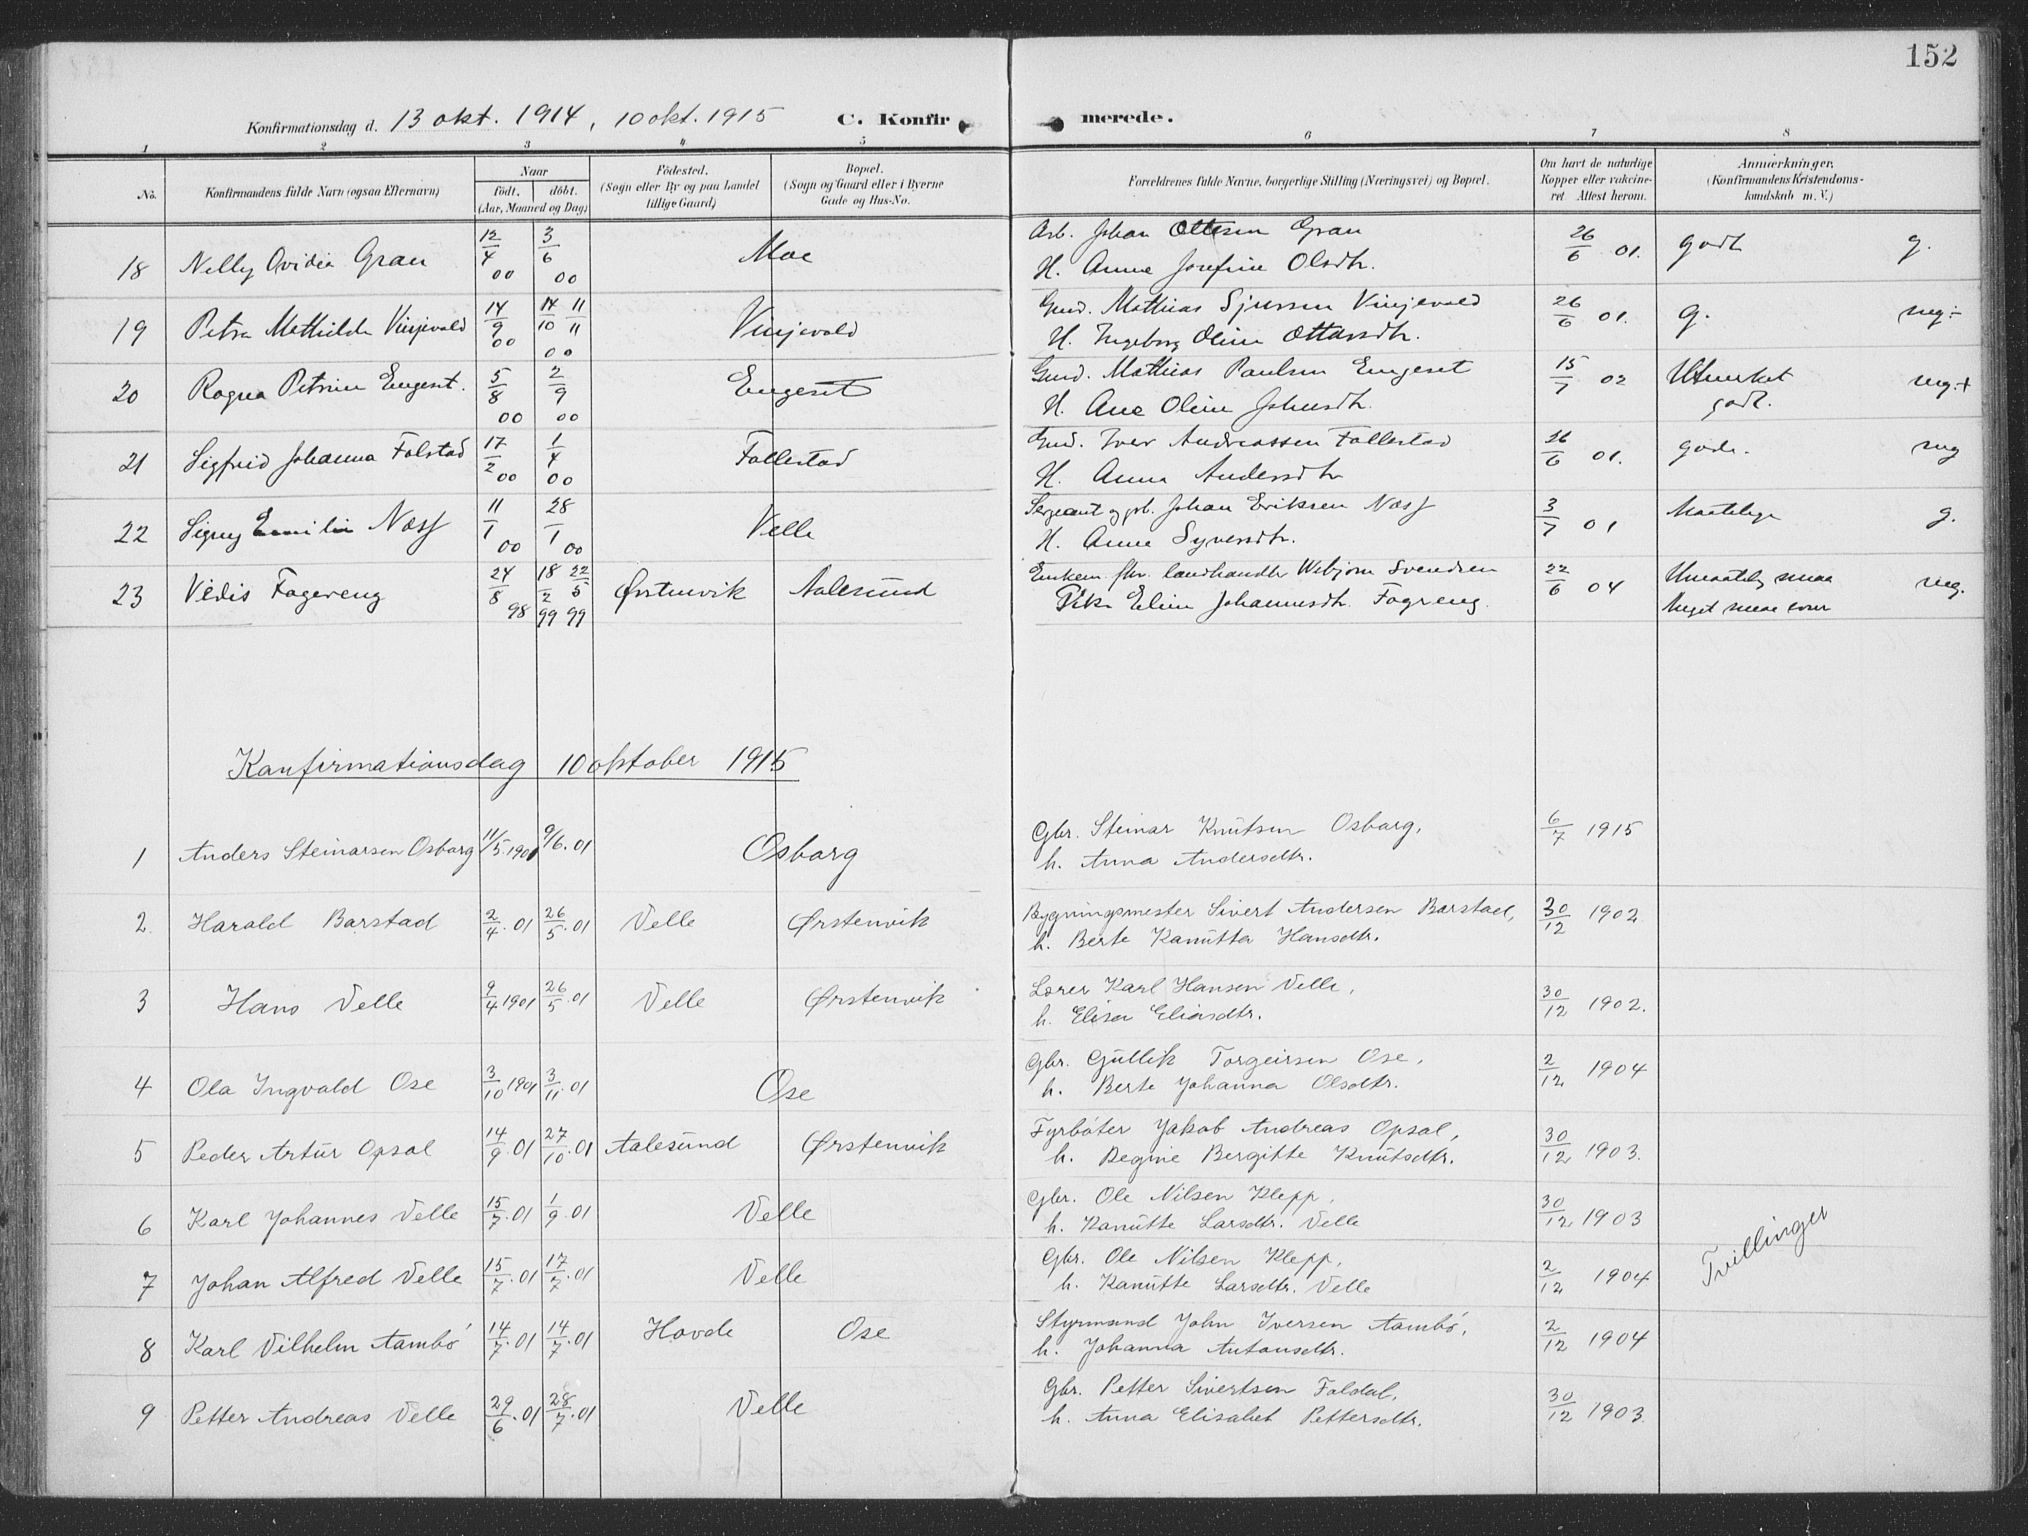 152
Konfirmationsdag d. 13 okt. 1914, 10 okt. 1915 C. Konfirmerede.
1 2 3 4 5 6 7 8
No. Konfirmandens fulde Navn (ogsaa Efternavn) Naar födt, döbt. (Aar, Maaned og Dag) Födested. (Sogn eller By og paa Landet tillige Gaard) Bopæl. (Sogn og Gaard eller i Byerne Gade og Hus-No. Forældrenes fulde Navne, borgerlige Stilling (Næringsvei) og Bopæl. Om havt de naturlige Kopper eller vakcineret Attest herom. Anmærkninger, (Konfirmandens Kristendomskundskab m. V.)
18 Nelly Ovidia Gran 12/4 00 3/6 00 Moe Arb. Johan Ottesen Gran 26/6 01. godt g.
H. Anne Josefine Olsdtr.
19 Petra Mathilde Vinjevold 14/9 00 14/10 11/11 00 Vinjevold Gmd. Mathias Sjursen Vinjevold 26/6 01. g. mg÷
H. Ingeborg Oline Ottarsdtr.
20 Ragna Petrine Engeset. 5/8 00 2/9 00 Engeset Gmd. Mathias Paulsen Engeset 15/7 02 Utmerket godt. mg.+
H. Ane Oline Johnsdtr.
21 Sigfrid Johanna Folstad 17/2 00 1/4 00 Follestad Gmd. Iver Andreassen Follestad 26/6 01. godt. mg
H. Anne Andersdtr
22 Signy Emilie Næss 11/1 00 28/1 00 Velle Sergeant og gb. Johan Eriksen Næss 3/7 01 Maatelig g.
H. Anne Syversdtr.
23 Vedis Fagereng 24/8 98 18/2 99 22/5 99 Ørstenvik Aalesund Enkem. fhv. landhandler Webjørn Svendsen 22/6 04 mg.
Pike Eline Johannesdtr. Fagreng. Meget
Konfirmationsdag 10 oktober 1915
1 Anders Steinarsen Osborg 11/5.1901 9/6.01 Osborg Gbr. Steinar Knutsen Osborg, 6/7 1915
h. Anna Andersdtr.
2 Harald Barstad 2/4.01 26/5.01 Velle Ørstenvik Bygningsmester Sivert Andersen Barstad, 30/12 1902
h. Berte Kanutta Hansdtr.
3 Hans Velle 9/4 1901 26/5.01 Velle Ørstenvik Lærer Karl Hansen Velle, 30/12 1902.
h. Elisa Eliasdtr.
4 Ola Ingvald Ose 3/10 1901 3/11.01 Ose Gbr. Gullik Torgeirsen Ose, 2/12 1904
h. Berte Johanna Olsdtr.
5 Peder Artur Opsal 14/9.01 27/10.01 Aalesund Ørstenvik Fyrbøter Jakob Andreas Opsal, 30/12 1903.
h. Regine Bergitte Knutsdtr.
6 Karl Johannes Velle 15/7.01 1/9.01 Velle Gbr. Ole Nilsen Klepp, 30/12 1903
h. Kanutte Larsdtr. Velle
7 Johan Alfred Velle 15/7.01 17/7.01 Velle Gbr. Ole Nilsen Klepp, 2/12 1904 Tvillinger
h. Kanutte Larsdtr. Velle
8 Karl Vilhelm Aambø 14/7.01 14/7.01 Hovde Ose Styrmand John Iversen Aambø, 2/12 1904
h. Johanna Antonsdtr.
9 Petter Andreas Velle 29/6.01 28/7.01 Velle Gbr. Petter Sivertsen Foldal, 30/12 1903.
h. Anna Elisabet Pettersdtr.